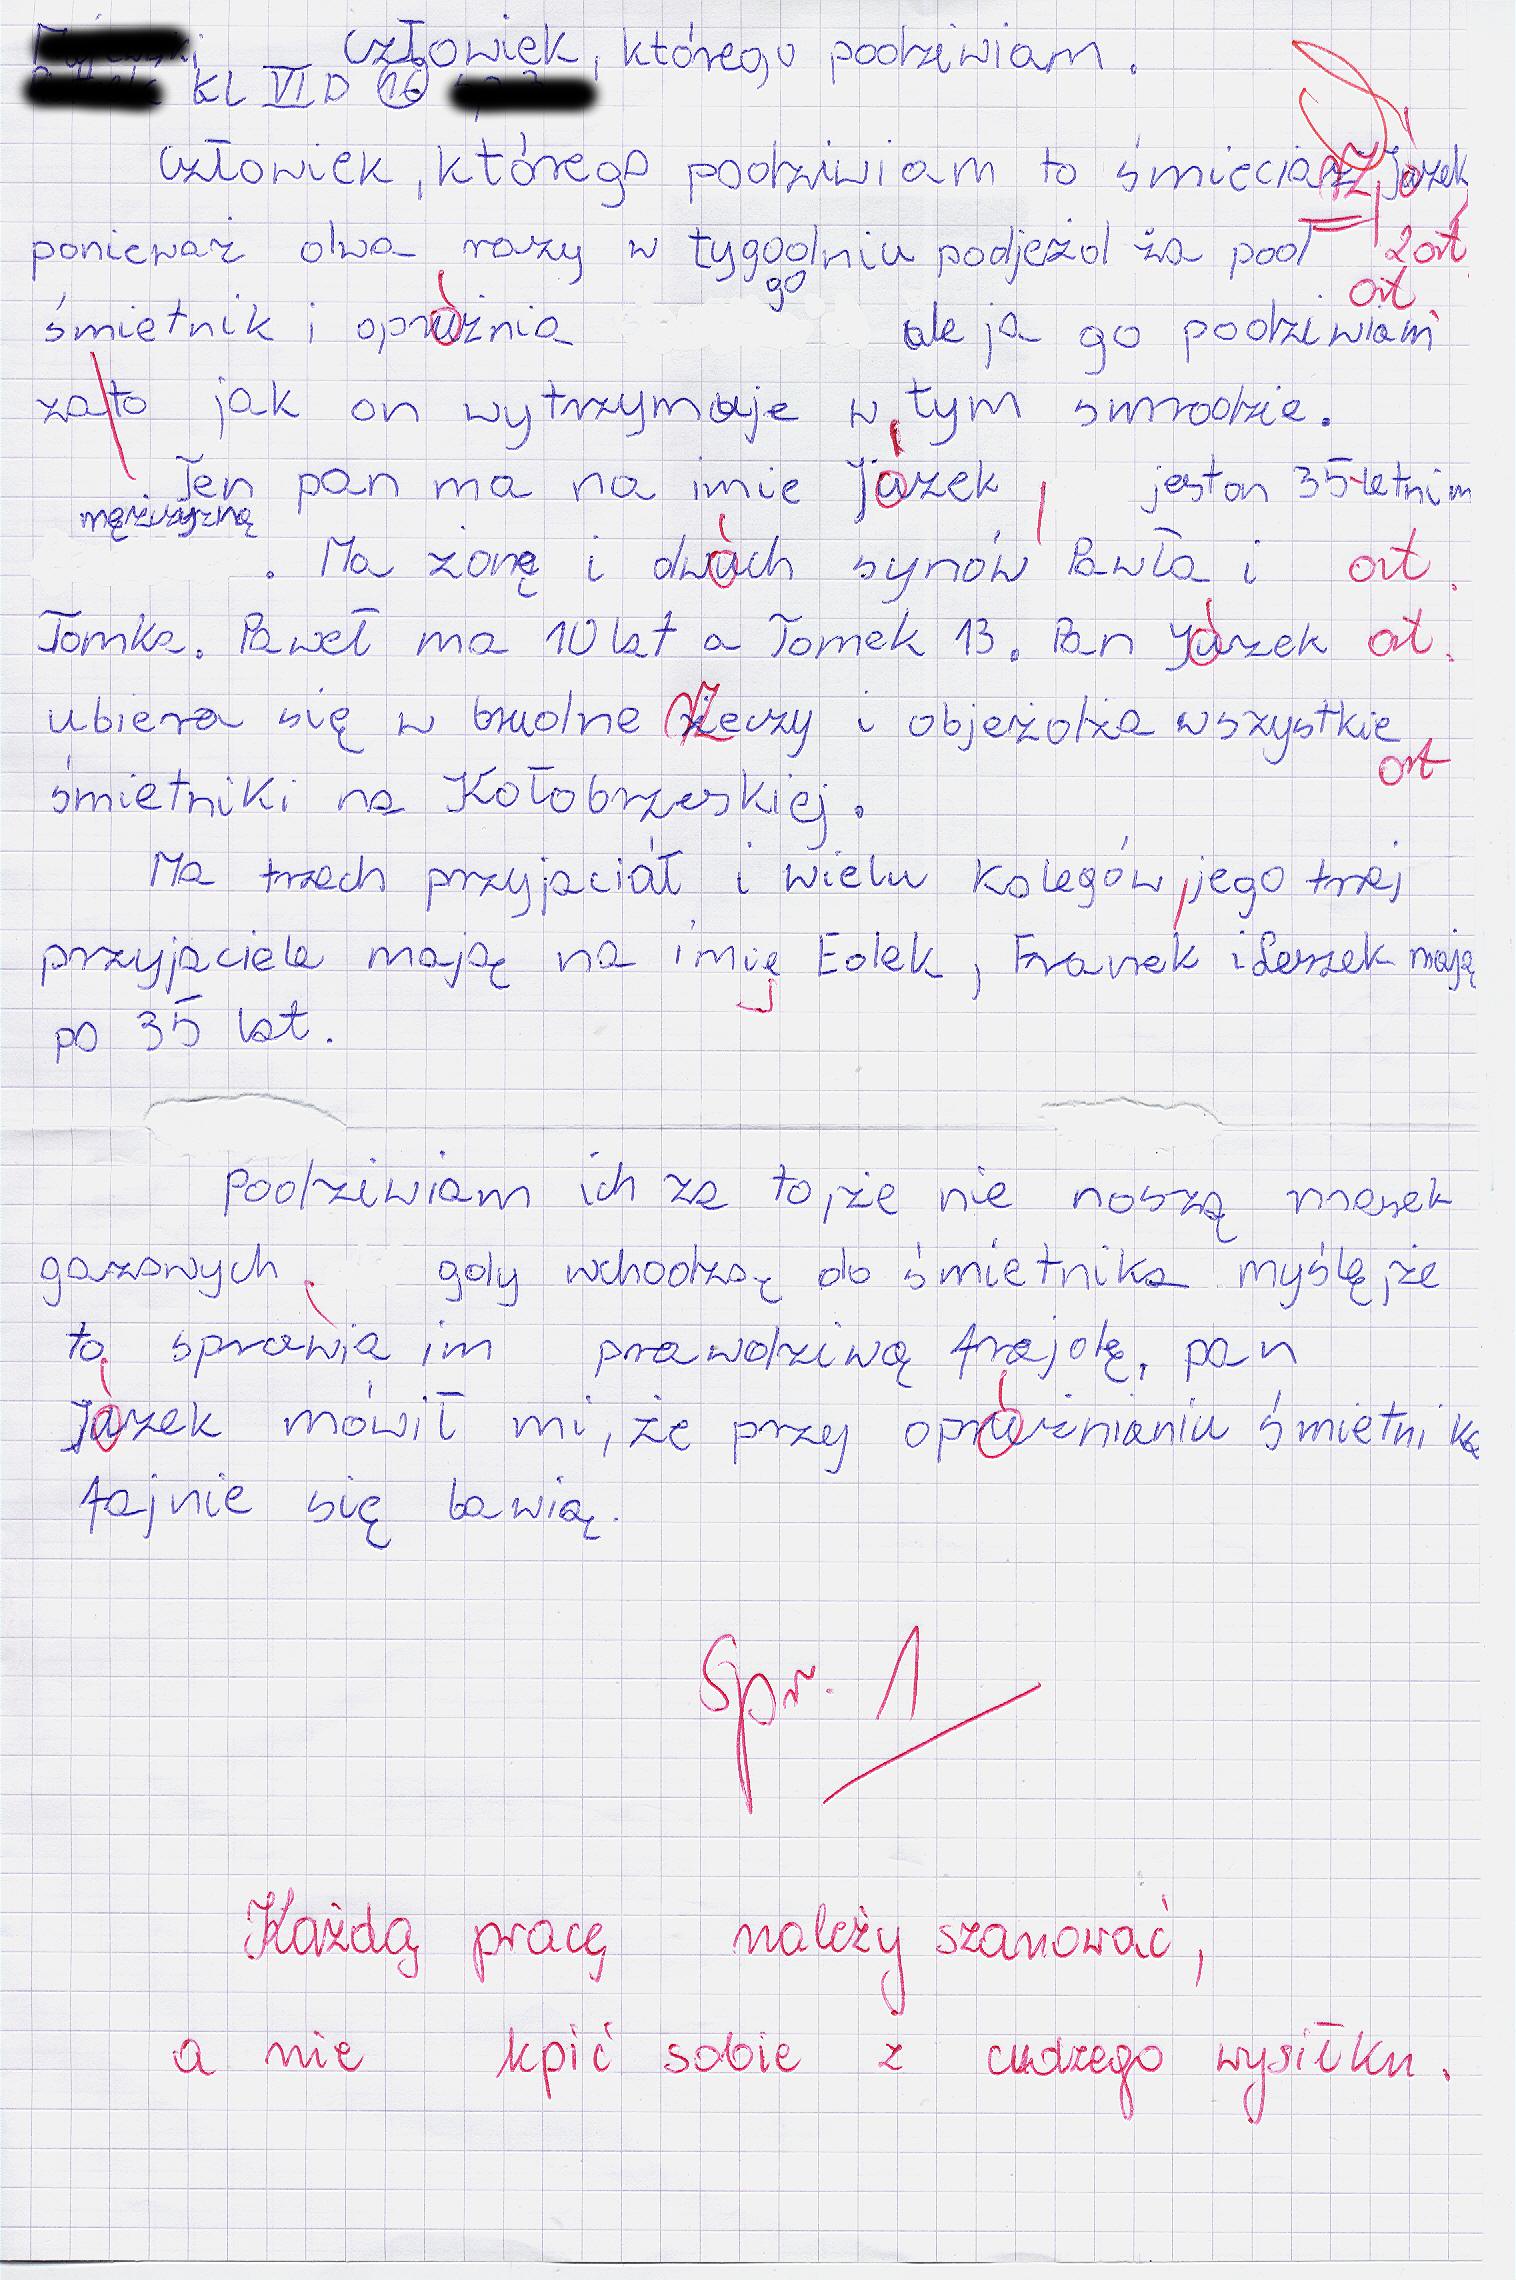 Człowiek, którego podziwiam.
KL VI D 16
Człowiek, którego podziwiam to śmieciarz Juzek
ponieważ dwa razy w tygodniu podjeżdża pod 2 ort
go ort
śmietnik i oprużnia ale ja go podziwiam
za to jak on wytrzymuje w tym smrodzie.
Ten pan ma na imie Juzek jest on 35-letnim
mężczyzną
. Ma żonę i dwuch synów Pawła i ort.
Tomka. Paweł ma 10 lat a Tomek 13. Pan Juzek ort.
ubiera się w brudne żeczy i objeżdża wszystkie
ort
śmietniki na Kołobrzeskiej.
Ma trzech przyjaciół i wielu kolegów, jego trzej
przyjaciele mają na imię Edek, Franek i Leszek mają
po 35 lat.
Podziwiam ich za to, że nie noszą masek
gazowych, gdy wchodzą do śmietnika myślę, że
to sprawia im prawdziwą frajdę, pan
Juzek mówił mi, że przy oprużnianiu śmietnika
fajnie się bawią.
Spr. 1
Każdą pracę należy szanować,
a nie kpić sobie z cudzego wysiłku.